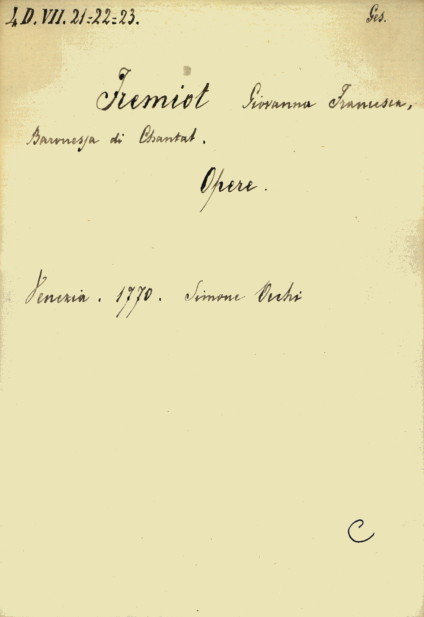 4 D. VII. 21=22=23. Ges.
Fremiot Giovanna Francesca,
Baronessa di Chantal.
Opere.
Venezia. 1770. Simone Occhi
C